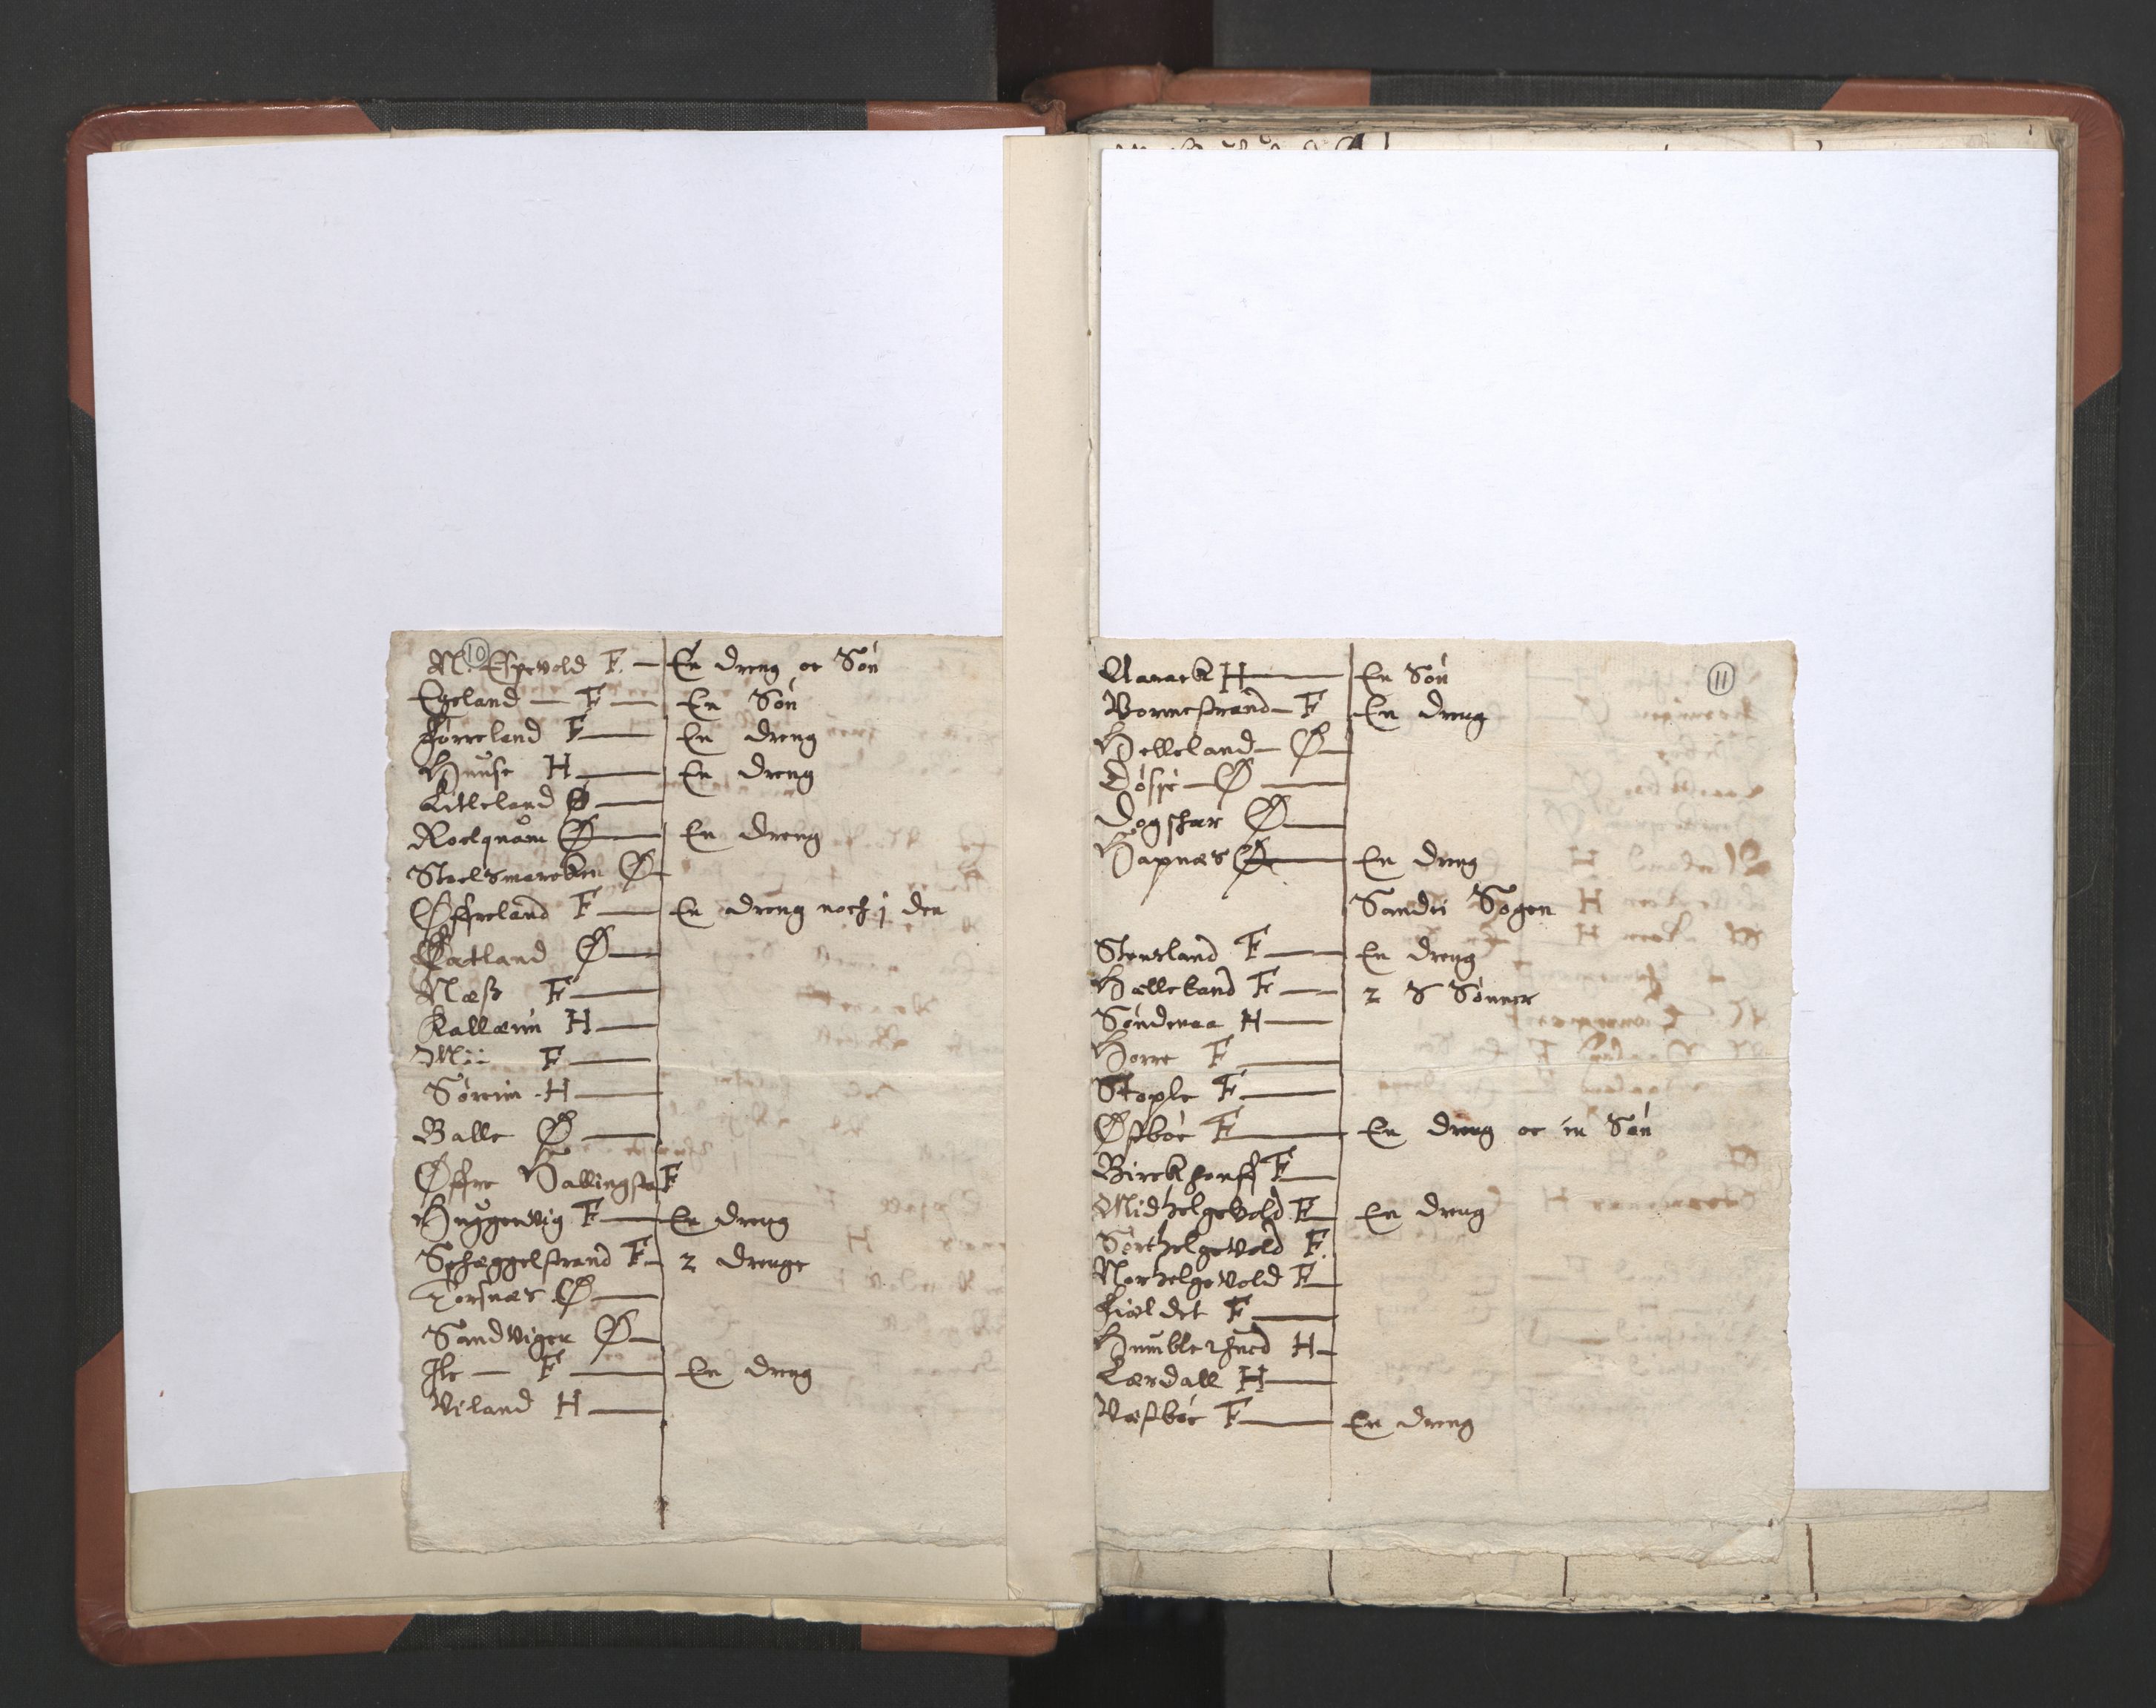 10
N. Espevold F. — En dreng oc Søn
Egeland — F — En Søn
Førreland F — En dreng
Huuse H — En dreng
Litleland Ø —
Roelquam Ø — En dreng
Stoelsmarcken Ø
Øffreland F — En dreng noch j den
Fatland Ø —
Næss F —
Kallæim H —
Mii F —
Søreim H —
Balle Ø —
Øffre Hallingsta F
Huggenvig F — En dreng
Schæggelstrand F — 2 drenge
Torsnæs Ø —
Sandviger Ø —
Ile — F — En dreng
Viland H —
11
Aarack H — En Søn
Vormestrand — F En dreng
Helleland — Ø —
Døsse — Ø —
Dogskar Ø —
Hapnæs Ø — En dreng
Sandei Sogen
Stensland F — En dreng
Helleland F — 2 S Sønner
Søndenaa H —
Horre F —
Stople F —
Østbøe F — En dreng oc en Søn
Birckhouff F —
Midhelgevold F — En dreng
Sørhelgevold F.
Norhelgevold F —
Fieldet F —
Humble H —
Lerdall H —
Vestbøe F — En dreng